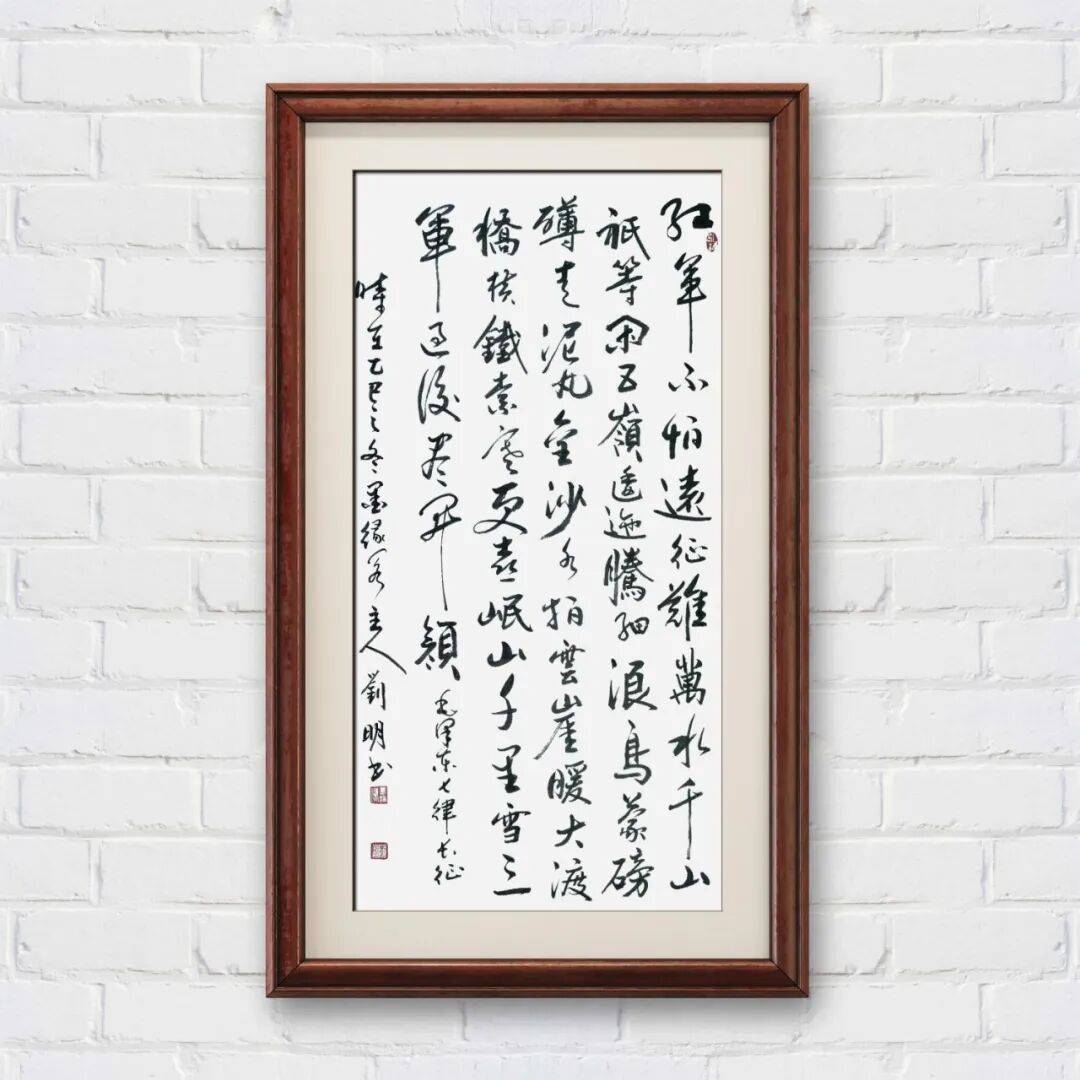 紅軍不怕遠征難萬水千山
祇等閑五嶺逶迤騰細浪烏蒙磅
礴走泥丸金沙水拍雲崖暖大渡
橋橫鐵索寒更喜岷山千里雪三
軍過後盡開顏
毛澤東七律長征
時在乙巳之冬墨緣主人劉明書